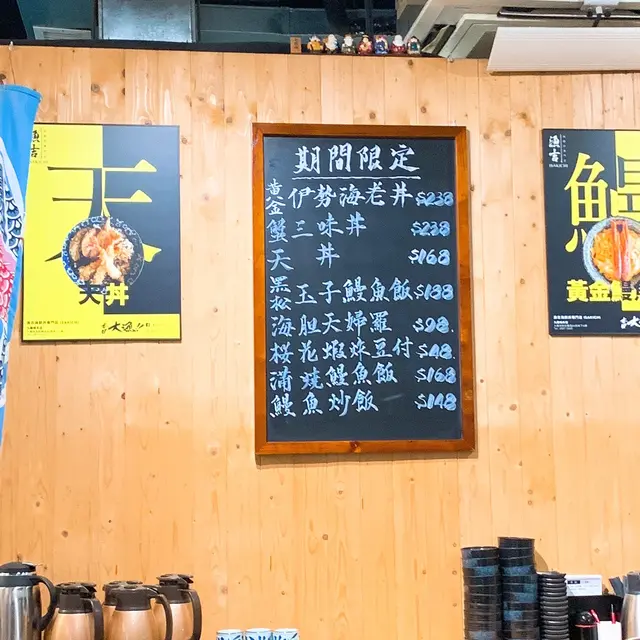 漁吉
天
天丼
期間限定
黃金伊勢海老丼 $238
蟹三味丼 $238
天丼 $168
黑松玉子鰻魚飯 $138
海胆天婦羅 $98.
桜花蝦炊豆付 $48.
蒲燒鰻魚飯 $168
鰻魚炒飯 $148
漁吉
鰻
黃金鰻